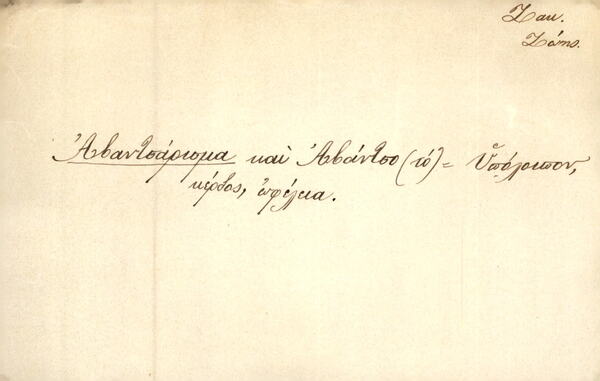 Ζακ.
Ζώης.
Ἀβαντσάρισμα καὶ Ἀβάντσο (τό) = Ὑπόλοιπον,
κέρδος, ὠφέλεια.